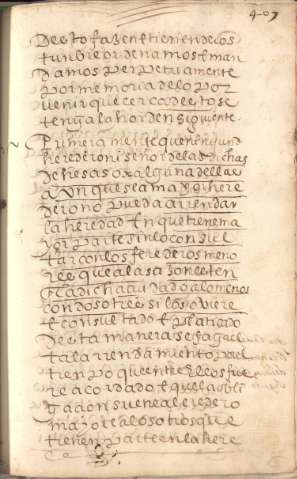 407
De esto fazen e tienen de cos
tunbre ordenamos e man
damos perpetuamente
por memoria de lo por
venir que cerca de esto se
tenga la horden siguiente
Primeramente que ningund
heredero ni señor de las dichas
dehesas o alguna dellas
aunque sea mayor here
dero no pueda arrendar
la heredad en que tiene ma
yor parte sin lo consul
tar con los herederos meno
res que a la sazon esten
en la dicha ciudad o a lo menos
con dos o tres si los oviere
e consultado e platicado
de esta manera se faga el
tal arrendamiento por el
tienpo que entre ellos fue
re acordado e que la obli
gacion suene al eredero
mayor e a los otros que
tienen parte en la here